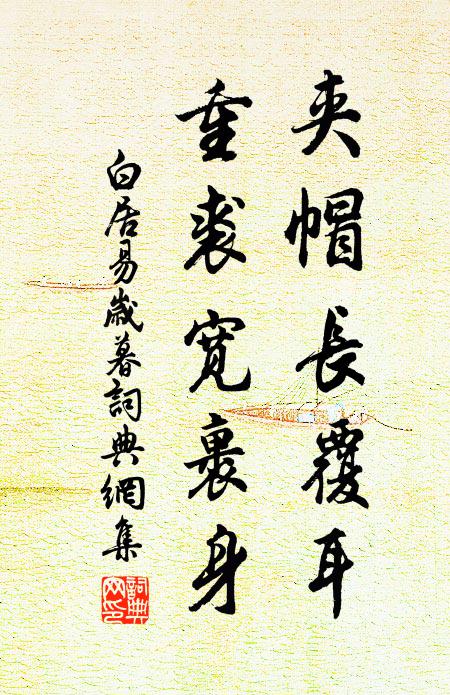 夹帽長覆耳
重裘寬裹身
白居易歲暮詞典網集
詞典網印